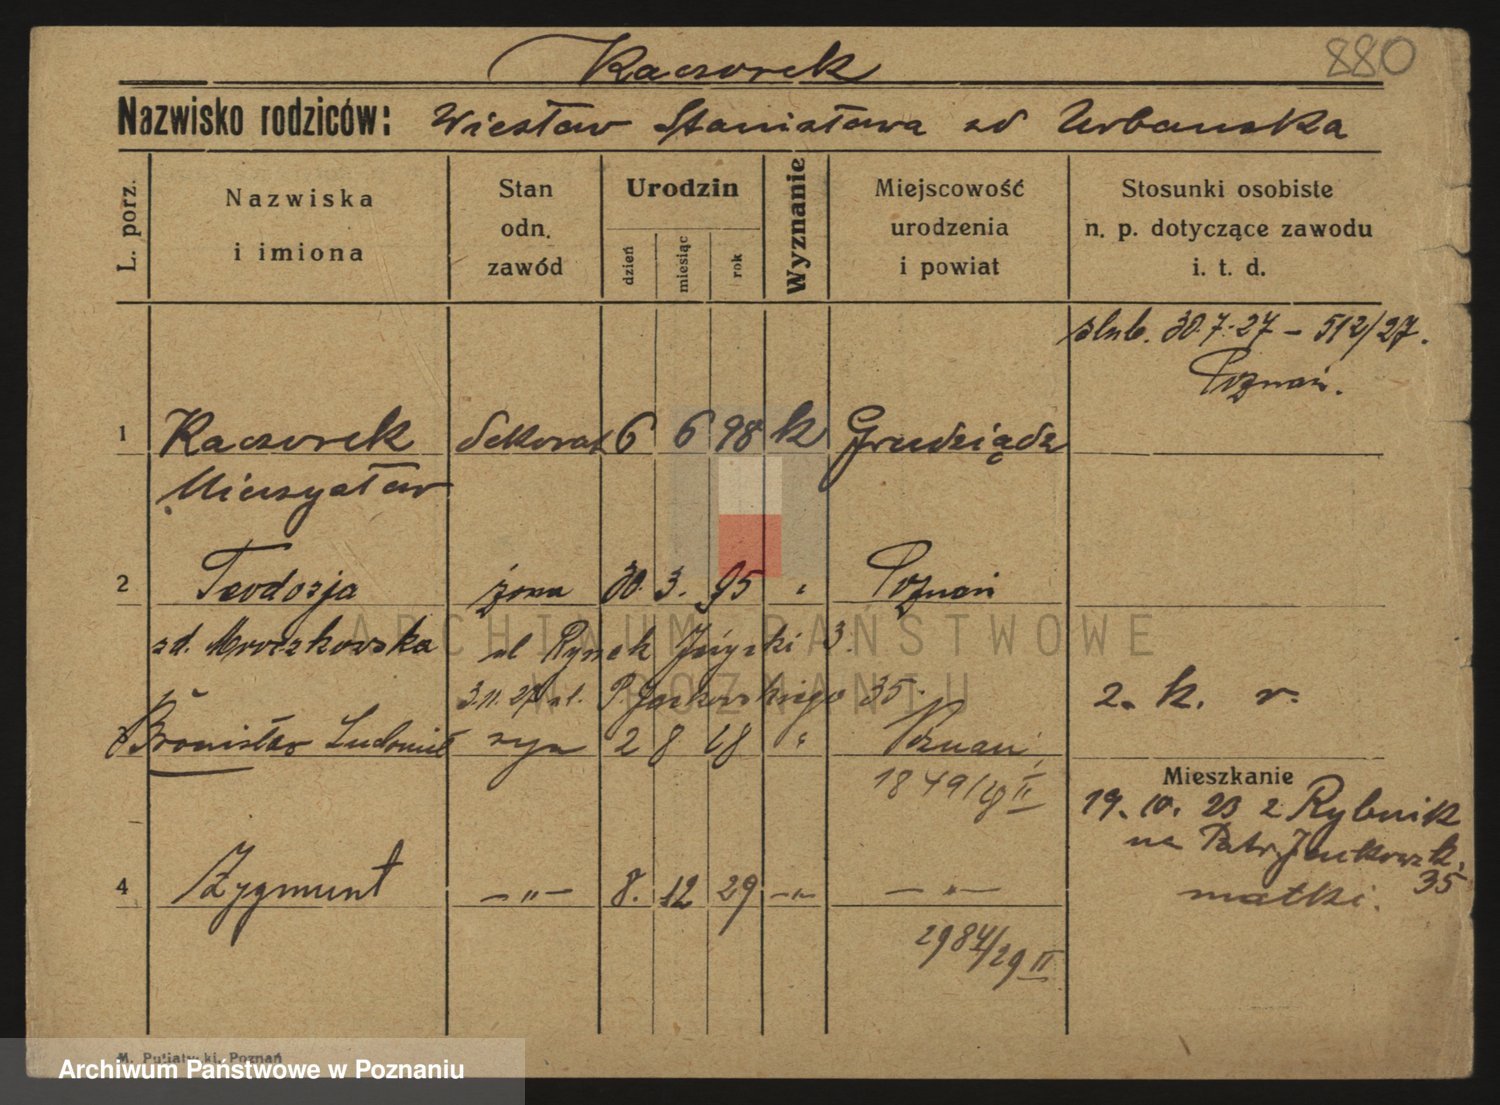 880
Kaczorek
Nazwisko rodziców: Wiesław Stanisława zd Urbańska
L. porz.
Nazwiska i imiona
Stan odn. zawód
Urodzin
dzień
miesiąc
rok
Wyznanie
Miejscowość urodzenia i powiat
Stosunki osobiste n. p. dotyczące zawodu i. t. d.
slub. 30.7.27 – 512/27.
Poznań.
1 Kaczorek dekorat 6 6 98 k Grudziądz
Mieczysław
2 Teodozja żona 30. 3. 95 " Poznań
zd. Mroczkowska ul Rynek Jeżycki 3.
3.11.27 ul. P. Jackowskiego 35.
2. k. r.
Bronisław Ludomił syn 2 8 28 " Poznań
1849/28 II
Mieszkanie
19. 10. 23 z Rybnik
na Patr. Jackowsk. 35
matki.
4 Zygmunt — " — 8. 12 29 — " — — " —
2984/29 II
M. Putiatycki, Poznań
ARCHIWUM PAŃSTWOWE
W POZNANIU
Archiwum Państwowe w Poznaniu